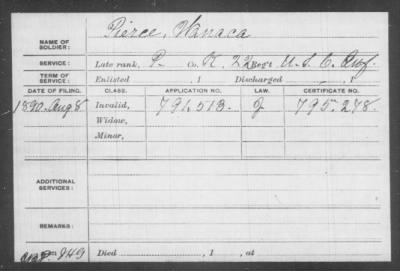 NAME OF SOLDIER: Pierce, Wanaca
SERVICE: Late rank, P. Co. K, 22 Reg't U.S.C. Inf.
TERM OF SERVICE: Enlisted , 1 Discharged , 1
DATE OF FILING. CLASS. APPLICATION NO. LAW. CERTIFICATE NO.
1890 Aug 8 Invalid, 791.513. J 795.278.
Widow,
Minor,
ADDITIONAL SERVICES:
REMARKS:
849 Died , 1 , at